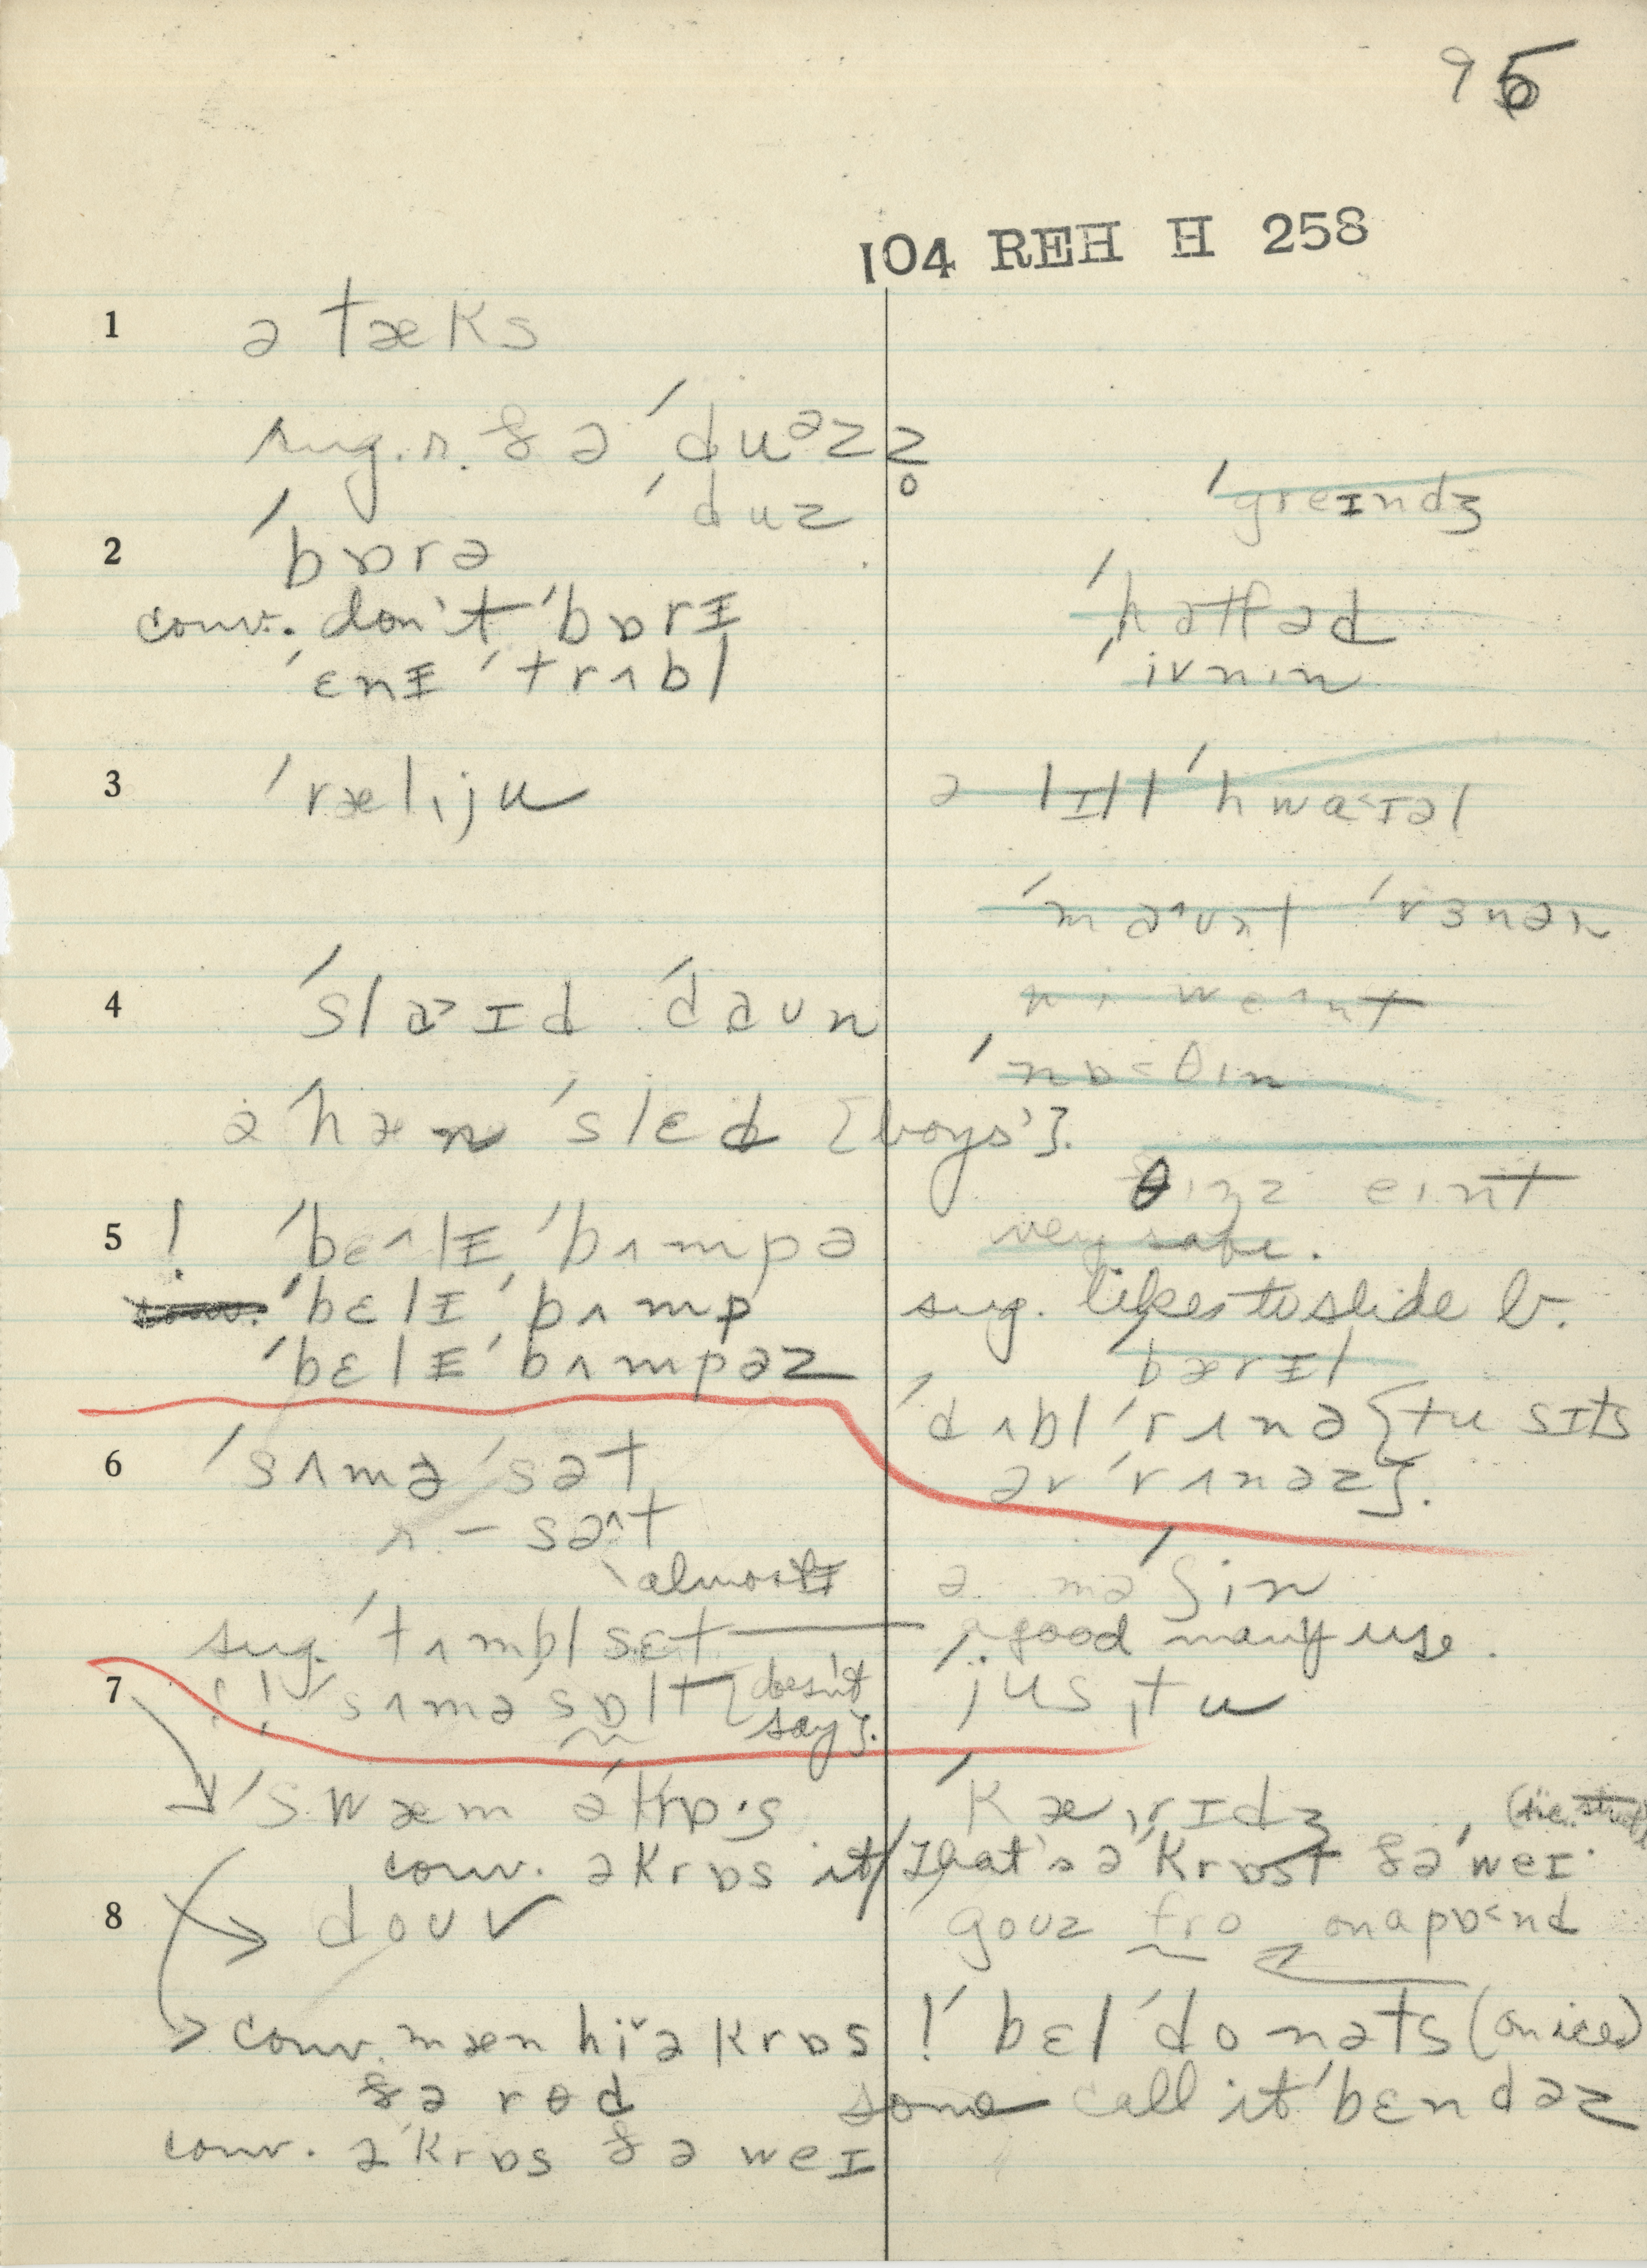 95
104 REH H 258
1 ə tæks
sug. r. & ə ˈduᵊzz̥
ˈduz
2 ˈbɒrə
conv. don't ˈbɒrɪ
ˈɛnɪ ˈtrʌbl
3 ˈræliju
4 ˈslaɪd ˈdaun
ə ˈhæn ˈslɛd [boys'].
5 ! ˈbɛ^lɪ ˈbʌmpə
ˈbɛlɪ ˈbʌmp
ˈbɛlɪ ˈbʌmpəz
6 ˈsʌmə ˈsət
r. – sə^t
almost ɪ
sug. ˈtʌmbl sɛt
7 ! ! sʌmə sɒlt [doesn't say].
ˈswæm əˈkrɒ·s
conv. əkrɒs it
8 douv
conv. mæn hi ə krɒs
ðə rɵd
conv. əˈkrɒs ðə weɪ
ˈgreɪndʒ
ˈhætfəd
ˈivnin
ə lɪtl ˈhwa<ɪəl
ˈma^unt ˈvɜnən
ˈnɒ<θin
θiŋz eint
very safe.
sug. likes to slide b.
bærɪl
ˈdʌbl ˈrʌnə {tu sɪts
ər ˈrʌnəz}.
ə məˈʃin
a good many use.
ˈjus tu
ˈkærɪdʒ
that's əˈkrɒst ðəˈweɪ.
gouz fro on a pɒ<nd
! ˈbɛl ˈdonəts (on ice)
some call it ˈbɛndəz